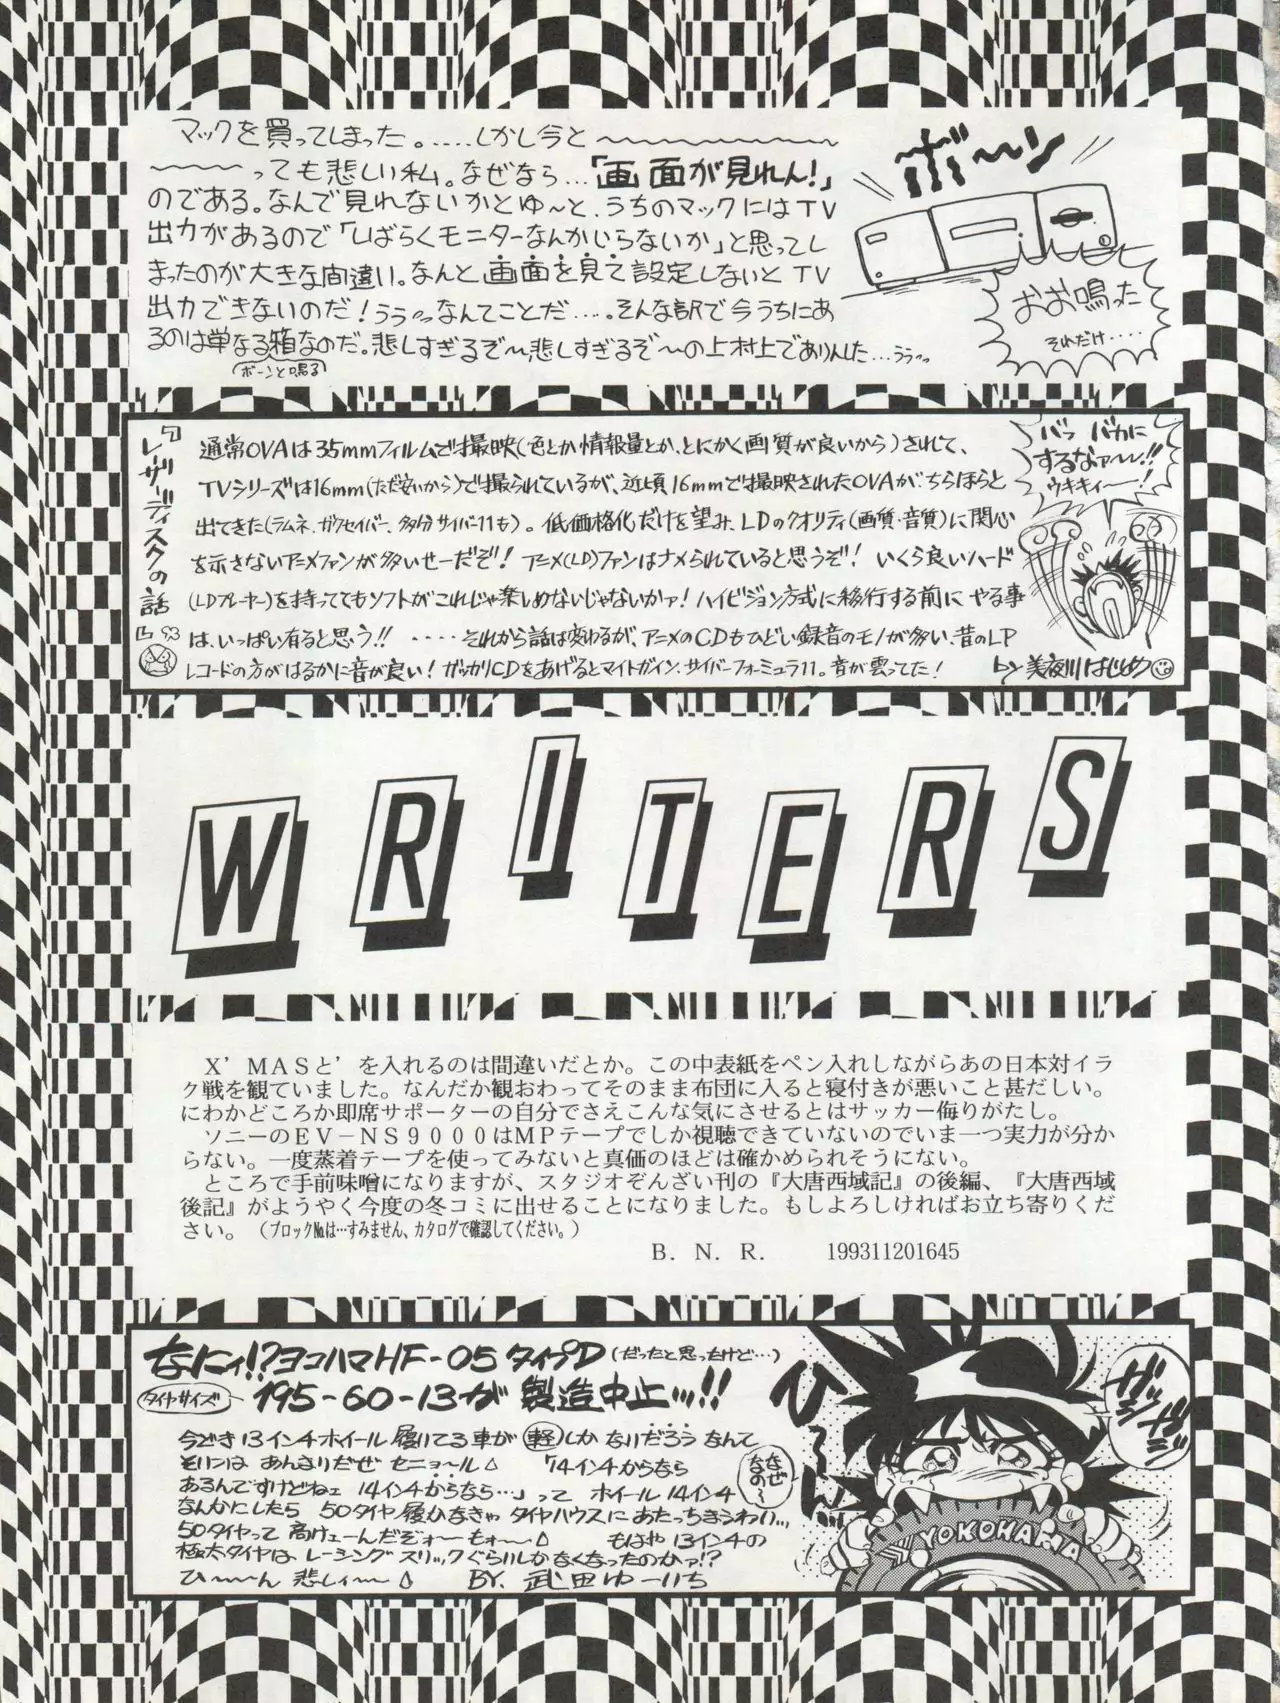 マックを買ってしまった。‥‥‥しかし今と〜〜〜〜〜〜〜〜
〜〜〜〜っても悲しい私。なぜなら…「画面が見れん!」
のである。なんで見れないかとゆ〜と、うちのマックにはTV
出力があるので「しばらくモニターなんかいらないか」と思ってし
まったのが大きな間違い。なんと画面を見て設定しないとTV
出力できないのだ!ううぅっなんてことだ…。そんな訳で今うちにあ
るのは単なる箱なのだ。悲しすぎるぞ〜悲しすぎるぞ〜の上村上でありんした…ううっ
ボーンと鳴る
ボ〜〜ン
おお鳴った
それだけ‥‥
『レーザーディスクの話』
93
通常OVAは35mmフィルムで撮映(色とか情報量とか、とにかく画質が良いから)されて、
TVシリーズは16mm(ただ安いから)で撮られているが、近頃16mmで撮映されたOVAがちらほらと
出てきた(ラムネ、ガクセイバー、多分サイバー11も)。低価格化だけを望み、LDのクオリティ(画質・音質)に関心
を示さないアニメファンが多いせーだぞ!アニメ(LD)ファンはナメられていると思うぞ!いくら良いハード
(LDプレーヤー)を持っててもソフトがこれじゃ楽しめないじゃないかァ!ハイビジョン方式に移行する前にやる事
は、いっぱい有ると思う!!‥‥‥それから話は変わるが、アニメのCDもひどい録音のモノが多い、昔のLP
レコードの方がはるかに音が良い!ガッカリCDをあげるとマイトガイン、サイバーフォーミュラ11。音が曇ってた!
バッ バカに
するなァ〜〜!!
ウキキィ〜〜!
by 美夜川はじめ
WRITERS
X'MASと'を入れるのは間違いだとか。この中表紙をペン入れしながらあの日本対イラ
ク戦を観ていました。なんだか観おわってそのまま布団に入ると寝付きが悪いこと甚だしい。
にわかどころか即席サポーターの自分でさえこんな気にさせるとはサッカー侮りがたし。
ソニーのEV−NS9000はMPテープでしか視聴できていないのでいま一つ実力が分か
らない。一度蒸着テープを使ってみないと真価のほどは確かめられそうにない。
ところで手前味噌になりますが、スタジオぞんざい刊の『大唐西域記』の後編、『大唐西域
後記』がようやく今度の冬コミに出せることになりました。もしよろしければお立ち寄りくだ
さい。(ブロック№は…すみません、カタログで確認してください。)
B．N．R． 199311201645
なにィ!?ヨコハマHF-05タイプD(だったと思ったけど…)
タイヤサイズ 195-60-13が製造中止ッ!!
今どき13インチホイール履いてる車が軽しかないだろうなんて
そりはあんまりだぜセニョ〜ル 「14インチからなら
あるんですけどねェ 14インチからなら…」って ホイール14インチ
なんかにしたら 50タイヤ履かなきゃ タイヤハウスにあたっちまうわい…
50タイヤって高けェーんだぞォ〜 もォ〜 もはや13インチの
極太タイヤはレーシングスリックぐらいしかなくなったのかァ!?
ひ〜〜ん 悲しィ〜 BY. 武田ゆーいち
なぜなの〜
ひ〜〜ん
ガジガジ
YOKOHAMA